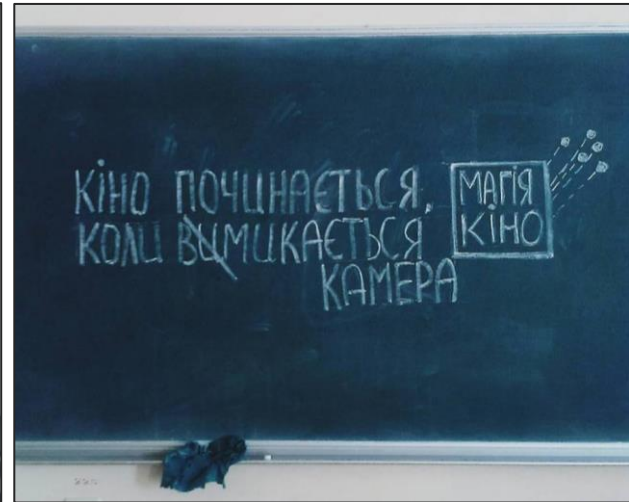 КІНО ПОЧИНАЄТЬСЯ,
КОЛИ ВИМИКАЄТЬСЯ
КАМЕРА
МАГІЯ
КІНО